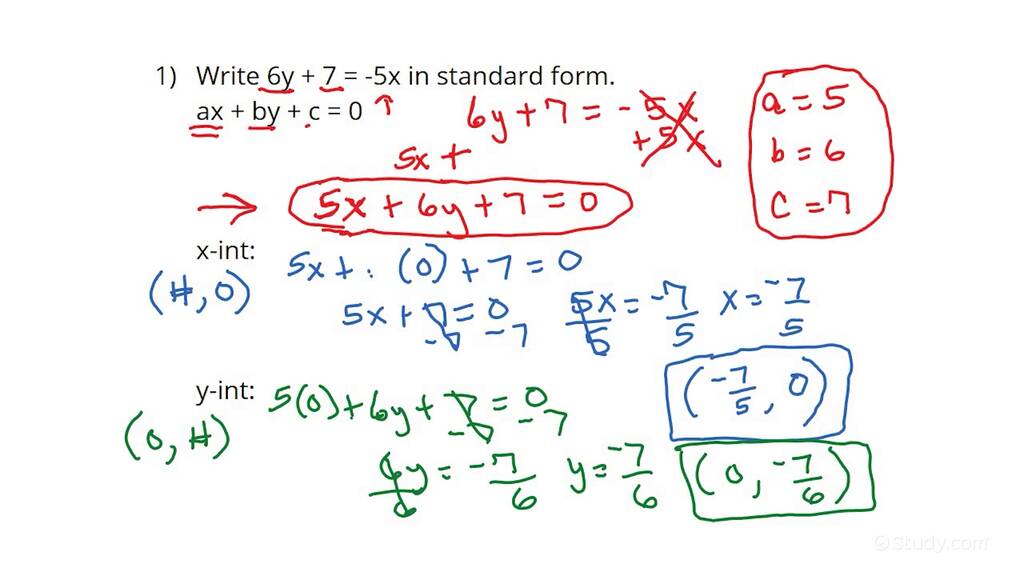 1) Write 6y + 7 = -5x in standard form.
ax + by + c = 0
6y + 7 = - 5x
+ 5x
5x +
5x + 6y + 7 = 0
a = 5
b = 6
c = 7
x-int:
(#, 0)
5x + · (0) + 7 = 0
5x + 7 = 0
-7 -7
5x/5 = -7/5
x = -7/5
(-7/5, 0)
y-int:
(0, #)
5(0) + 6y + 7 = 0
-7 -7
6y/6 = -7/6
y = -7/6
(0, -7/6)
©Study.com